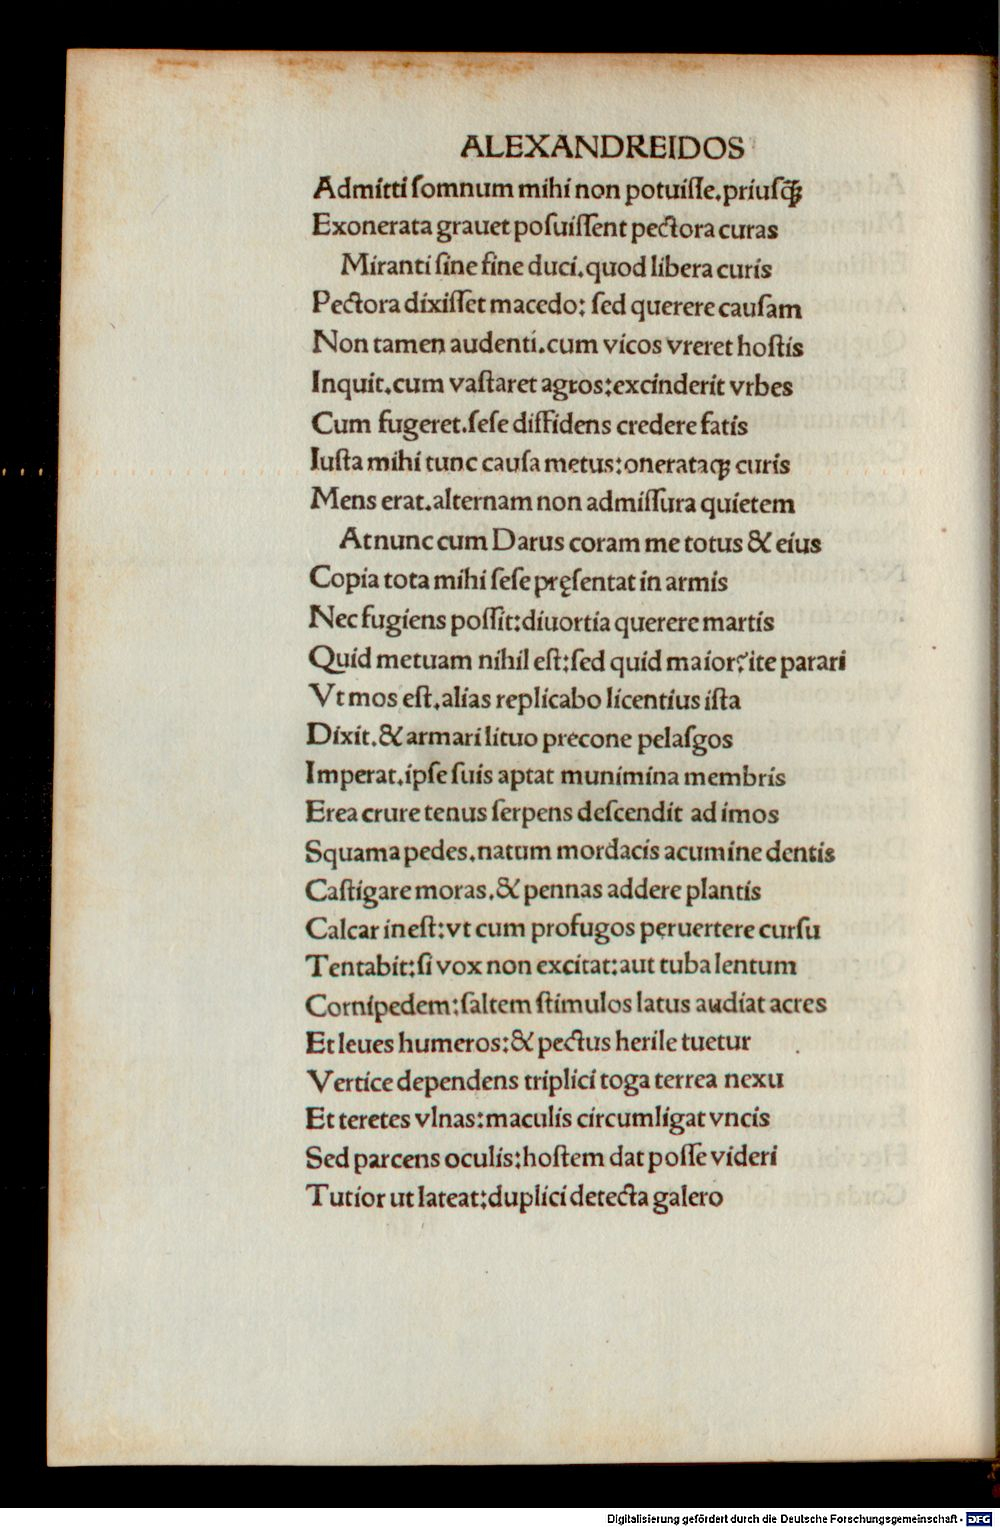 ALEXANDREIDOS
Admitti ſomnum mihi non potuiſſe.priuſq̃ꝫ
Exonerata grauet poſuiſſent pectora curas
Miranti ſine fine duci.quod libera curis
Pectora dixiſſet macedo: ſed querere cauſam
Non tamen audenti.cum vicos vreret hoſtis
Inquit.cum vaſtaret agros:excinderit vrbes
Cum fugeret.ſeſe diffidens credere fatis
Iuſta mihi tunc cauſa metus:onerataqꝫ curis
Mens erat.alternam non admiſſura quietem
At nunc cum Darus coram me totus & eius
Copia tota mihi ſeſe pręſentat in armis
Nec fugiens poſſit:diuortia querere martis
Quid metuam nihil eſt:ſed quid maior?ite parari
Vt mos eſt.alias replicabo licentius iſta
Dixit.& armari lituo precone pelaſgos
Imperat.ipſe ſuis aptat munimina membris
Erea crure tenus ſerpens deſcendit ad imos
Squama pedes.natum mordacis acumine dentis
Caſtigare moras.& pennas addere plantis
Calcar ineſt:vt cum profugos peruertere curſu
Tentabit:ſi vox non excitat:aut tuba lentum
Cornipedem:ſaltem ſtimulos latus audiat acres
Et leues humeros:& pectus herile tuetur
Vertice dependens triplici toga terrea nexu
Et teretes vlnas:maculis circumligat vncis
Sed parcens oculis:hoſtem dat poſſe videri
Tutior ut lateat:duplici detecta galero
Digitalisierung gefördert durch die Deutsche Forschungsgemeinschaft - DFG